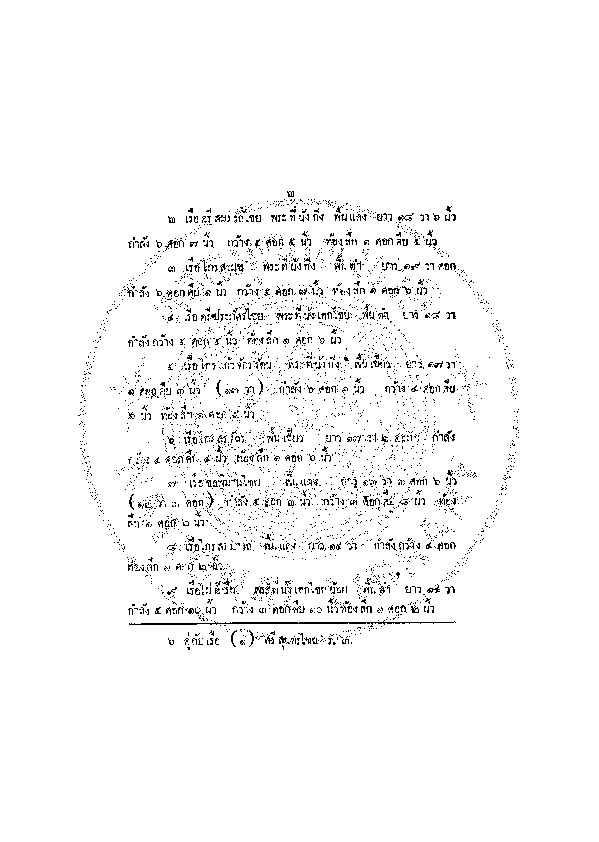 ๒
๒ เรือศรีสมรรถไชย พระที่นั่งกิ่ง พื้นแดง ยาว ๑๘ วา ๖ นิ้ว
กำลัง ๖ ศอก ๗ นิ้ว กว้าง ๕ ศอก ๕ นิ้ว ท้องลึก ๑ ศอกคืบ ๕ นิ้ว
๓ เรือไกรสรมุข พระที่นั่งกิ่ง พื้นดำ ยาว ๑๙ วา ศอก
กำลัง ๖ ศอกคืบ ๑ นิ้ว กว้าง ๕ ศอก ๗ นิ้ว ท้องลึก ๑ ศอก ๖ นิ้ว
๔ เรือศรีประภัศรไชย พระที่นั่งเอกไชย พื้นดำ ยาว ๑๘ วา
กำลังกว้าง ๕ ศอก ๕ นิ้ว ท้องลึก ๑ ศอก ๖ นิ้ว
๕ เรือไกรแก้วจักรรัตน พระที่นั่งกิ่ง พื้นเขียว ยาว ๑๗ วา
๑ ศอกคืบ ๓ นิ้ว (๑๓ วา) กำลัง ๖ ศอก ๑ นิ้ว กว้าง ๔ ศอกคืบ
๒ นิ้ว ท้องลึก ๑ ศอก ๕ นิ้ว
๖ เรือไกรสรจักร พื้นเขียว ยาว ๑๗ วา ๒ ศอก กำลัง
กว้าง ๕ ศอกคืบ ๕ นิ้ว ท้องลึก ๑ ศอก ๖ นิ้ว
๗ เรือขอพิมานไชย พื้นแดง ยาว ๑๓ วา ๓ ศอก ๖ นิ้ว
(๑๒ วา ๓ ศอก) กำลัง ๕ ศอก ๒ นิ้ว กว้าง ๓ ศอกคืบ ๘ นิ้ว ท้อง
ลึก ๑ ศอก ๒ นิ้ว
๘ พื้นแดง ยาว ๑๕ วา กำลังกว้าง ๔ ศอก
ท้องลึก ๑ ศอก ๒ นิ้ว
๙ พระที่นั่งเอกไชยน้อย พื้นดำ ยาว ๑๕ วา
กำลัง ๕ ศอก ๑๐ นิ้ว กว้าง ๓ ศอกคืบ ๑๐ นิ้ว ท้องลึก ๑ ศอก ๒ นิ้ว
๖ คู่กับเรือ (๑) ศรีสุนทรไชย